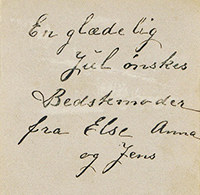 En glædelig
Jul ønskes
Bedstemoder
fra Else Anna
og Jens